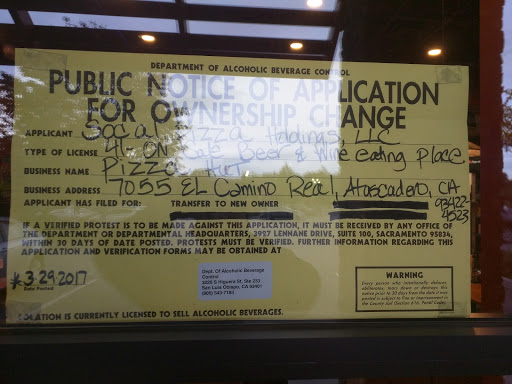 DEPARTMENT OF ALCOHOLIC BEVERAGE CONTROL
PUBLIC NOTICE OF APPLICATION
FOR OWNERSHIP CHANGE
APPLICANT Socal Pizza Holdings, LLC
TYPE OF LICENSE 41-ON Sale Beer & Wine eating Place
BUSINESS NAME Pizza Hut
BUSINESS ADDRESS 7055 EL Camino Real, Atascadero, CA 93422-4523
APPLICANT HAS FILED FOR: TRANSFER TO NEW OWNER
IF A VERIFIED PROTEST IS TO BE MADE AGAINST THIS APPLICATION, IT MUST BE RECEIVED BY ANY OFFICE OF
THE DEPARTMENT OR DEPARTMENTAL HEADQUARTERS, 3927 LENNANE DRIVE, SUITE 100, SACRAMENTO 95834,
WITHIN 30 DAYS OF DATE POSTED. PROTESTS MUST BE VERIFIED. FURTHER INFORMATION REGARDING THIS
APPLICATION AND VERIFICATION FORMS MAY BE OBTAINED AT
*3-29-2017
Date Posted
Dept. Of Alcoholic Beverage
Control
3220 S Higuera St, Ste 233
San Luis Obispo, CA 93401
(805) 543-7183
WARNING
Every person who intentionally defaces,
obliterates, tears down or destroys this
notice prior to 30 days from the date it was
posted is subject to fine or imprisonment in
the County Jail (Section 616, Penal Code).
LOCATION IS CURRENTLY LICENSED TO SELL ALCOHOLIC BEVERAGES.